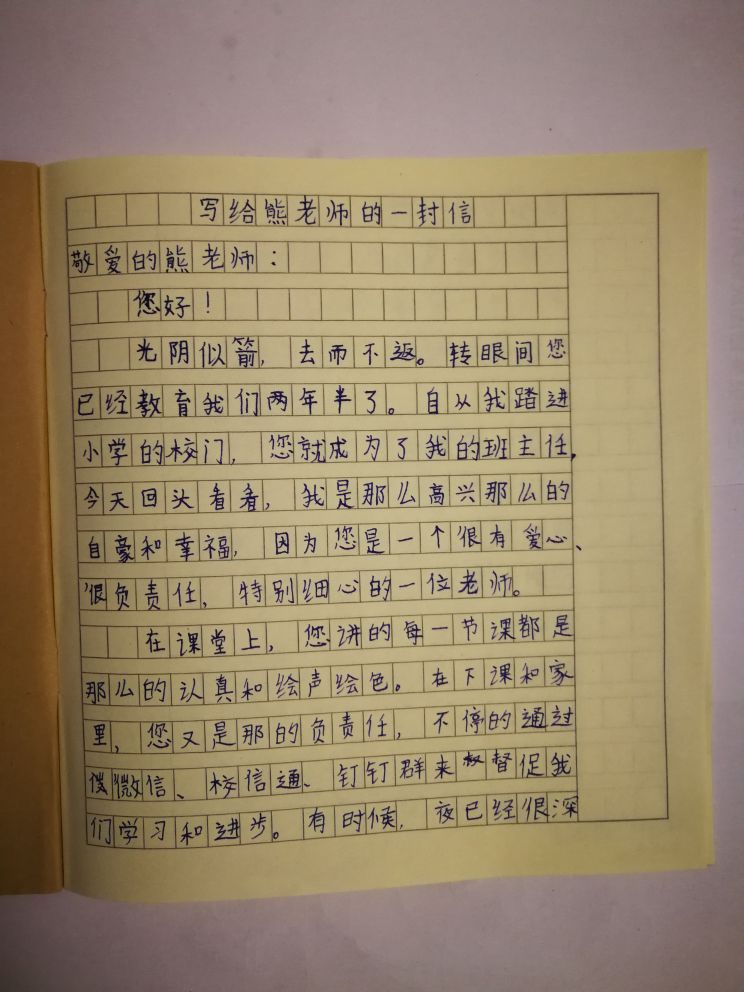 写给熊老师的一封信
敬爱的熊老师：
您好！
光阴似箭，去而不返。转眼间您
已经教育我们两年半了。自从我踏进
小学的校门，您就成为了我的班主任，
今天回头看看，我是那么高兴那么的
自豪和幸福，因为您是一个很有爱心、
很负责任，特别细心的一位老师。
在课堂上，您讲的每一节课都是
那么的认真和绘声绘色。在下课和家
里，您又是那的负责任，不停的通过
微信、校信通、钉钉群来督促我
们学习和进步。有时候，夜已经很深